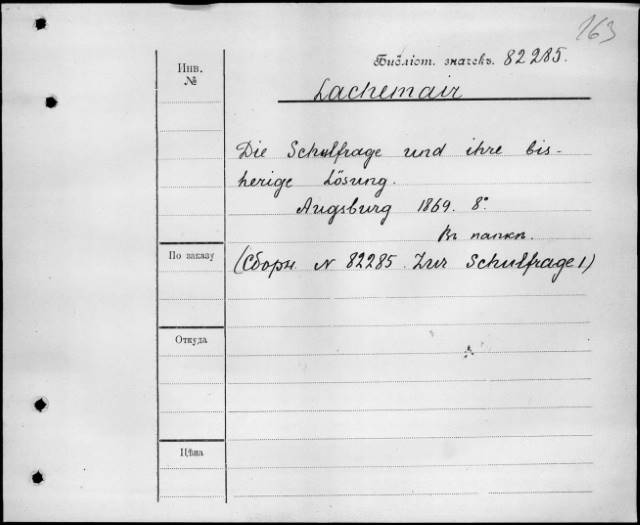 163
Библіот. значекъ. 82285.
Инв.
№
Lachemair
Die Schulfrage und ihre bis-
herige Lösung.
Augsburg 1869. 8°.
Въ папкѣ.
По заказу
(Сборн. N 82285. Zur Schulfrage 1)
Откуда
Цѣна